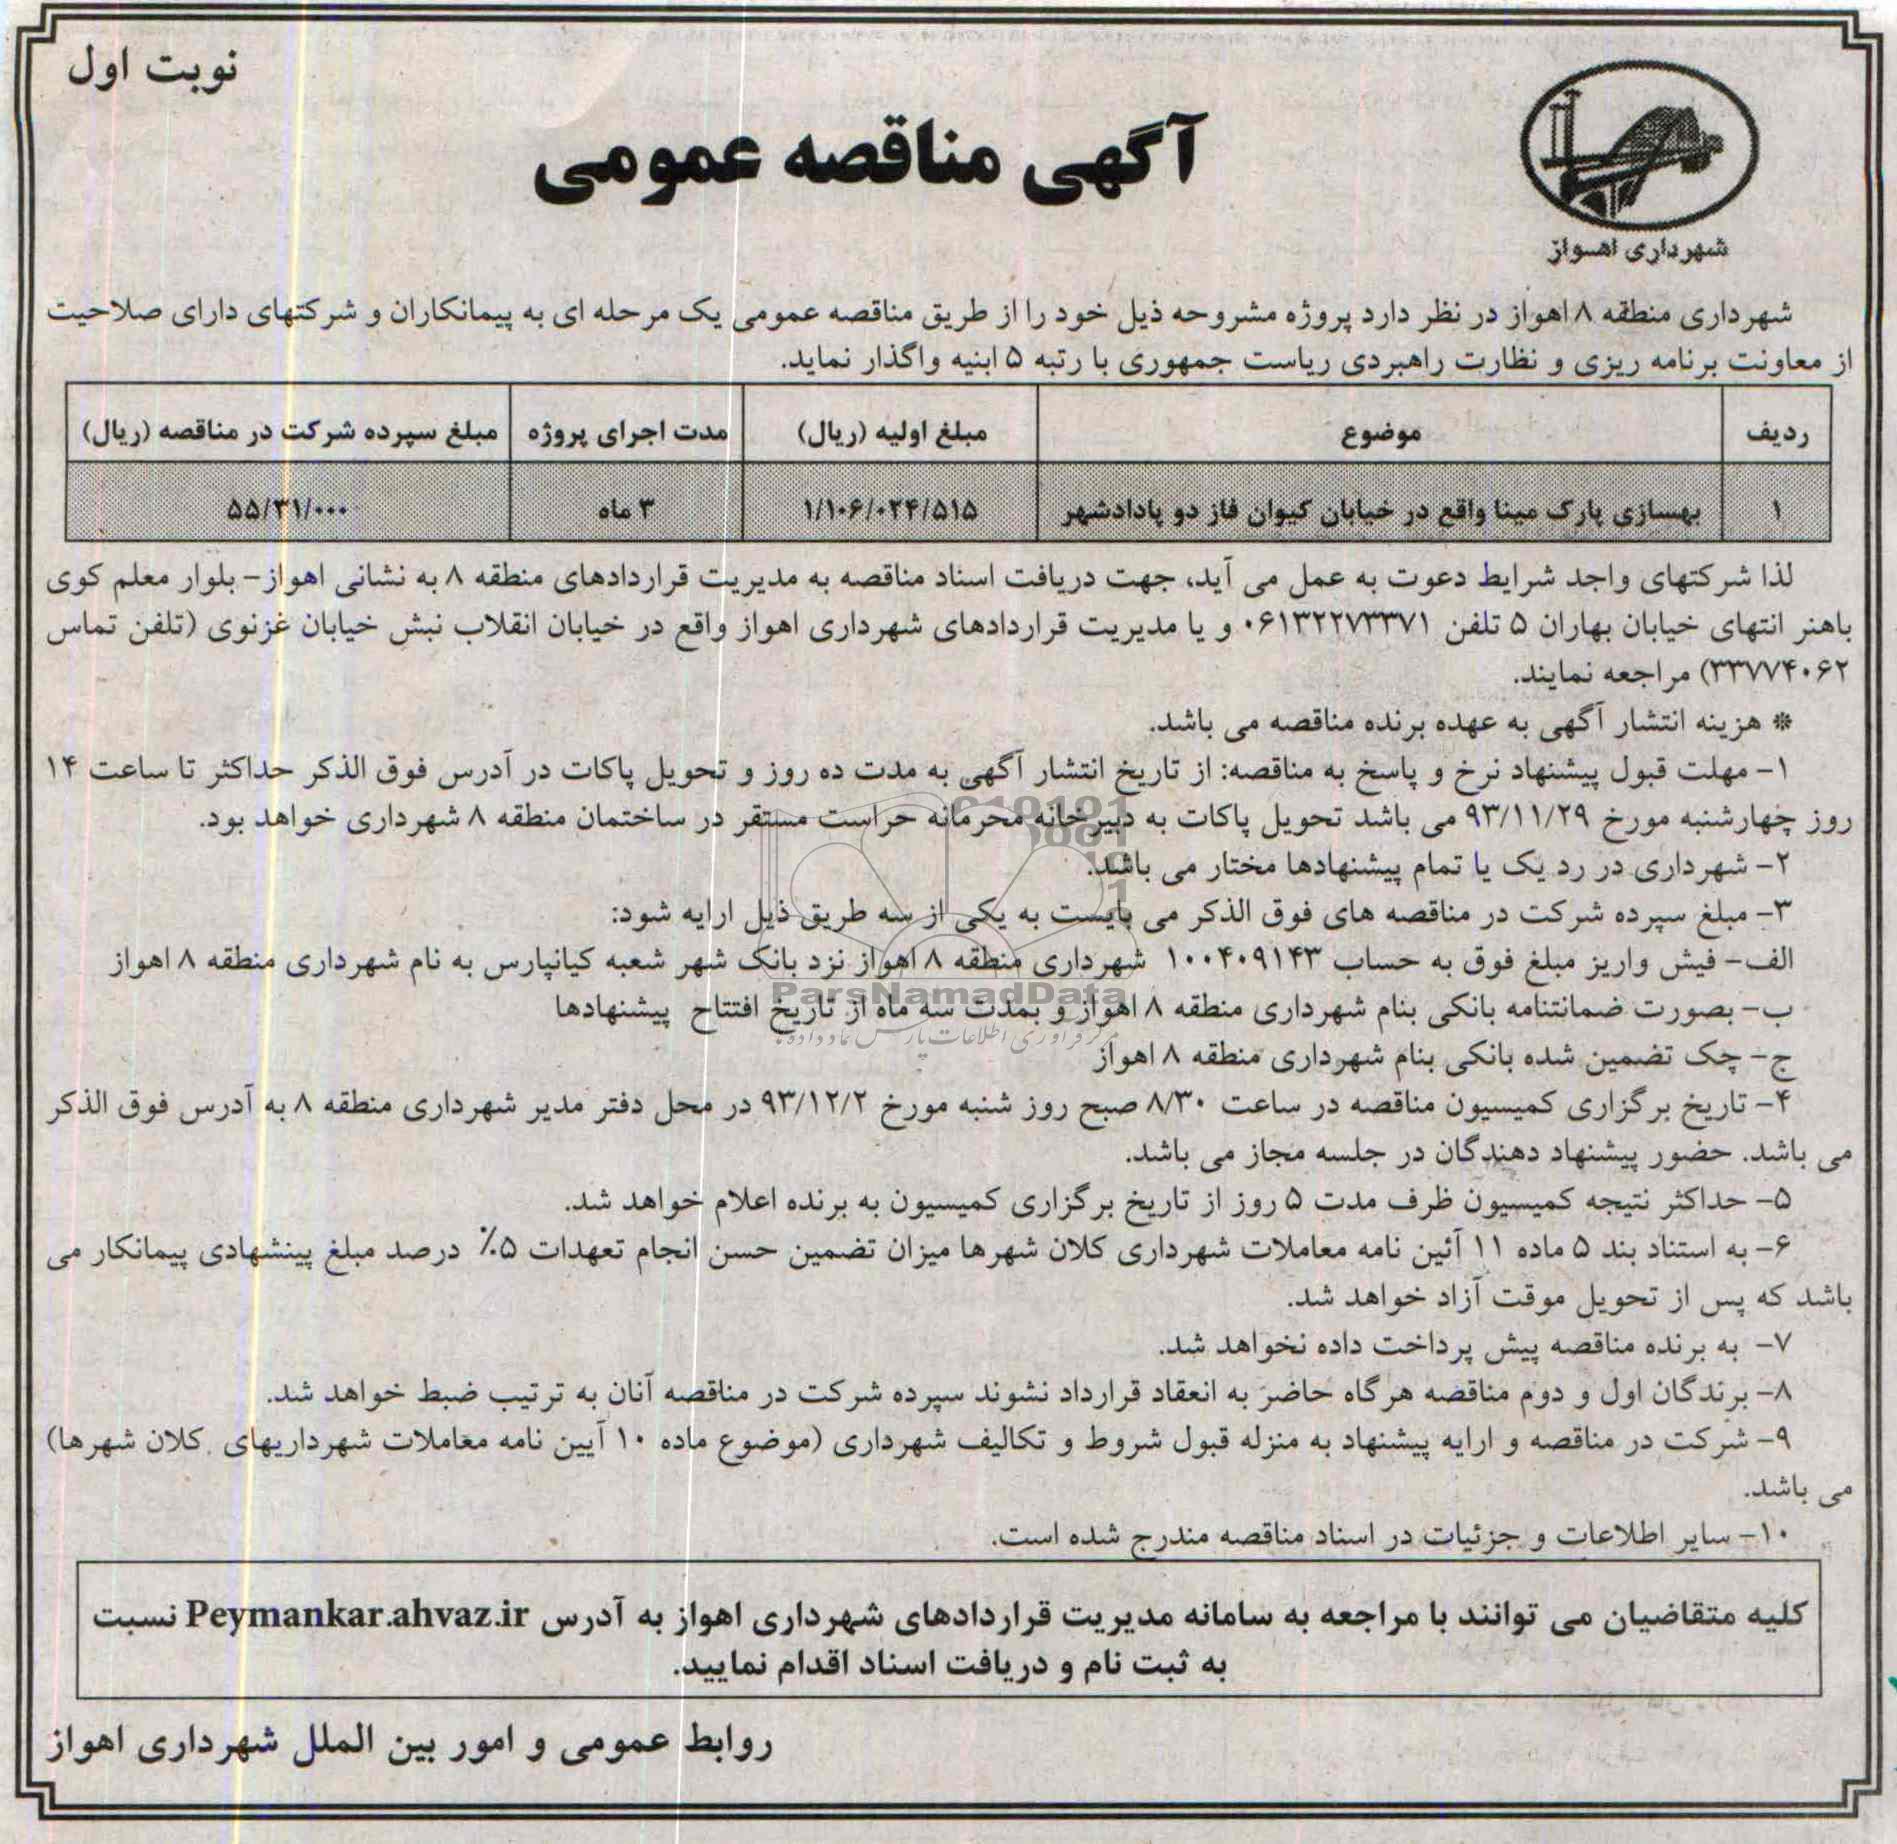 نوبت اول
آگهی مناقصه عمومی
شهرداری اهواز
شهرداری منطقه ۸ اهواز در نظر دارد پروژه مشروحه ذیل خود را از طریق مناقصه عمومی یک مرحله ای به پیمانکاران و شرکتهای دارای صلاحیت
از معاونت برنامه ریزی و نظارت راهبردی ریاست جمهوری با رتبه ۵ ابنیه واگذار نماید.
ردیف موضوع مبلغ اولیه (ریال) مدت اجرای پروژه مبلغ سپرده شرکت در مناقصه (ریال)
۱ بهسازی پارک مینا واقع در خیابان کیوان فاز دو پادادشهر ۱/۱۰۶/۰۲۴/۵۱۵ ۳ ماه ۵۵/۳۱/۰۰۰
لذا شرکتهای واجد شرایط دعوت به عمل می آید، جهت دریافت اسناد مناقصه به مدیریت قراردادهای منطقه ۸ به نشانی اهواز- بلوار معلم کوی
باهنر انتهای خیابان بهاران ۵ تلفن ۰۶۱۳۲۲۷۳۳۷۱ و یا مدیریت قراردادهای شهرداری اهواز واقع در خیابان انقلاب نبش خیابان غزنوی (تلفن تماس
۳۳۷۷۴۰۶۲) مراجعه نمایند.
* هزینه انتشار آگهی به عهده برنده مناقصه می باشد.
۱- مهلت قبول پیشنهاد نرخ و پاسخ به مناقصه: از تاریخ انتشار آگهی به مدت ده روز و تحویل پاکات در آدرس فوق الذکر حداکثر تا ساعت ۱۴
روز چهارشنبه مورخ ۹۳/۱۱/۲۹ می باشد تحویل پاکات به دبیرخانه محرمانه حراست مستقر در ساختمان منطقه ۸ شهرداری خواهد بود.
۲- شهرداری در رد یک یا تمام پیشنهادها مختار می باشد.
۳- مبلغ سپرده شرکت در مناقصه های فوق الذکر می بایست به یکی از سه طریق ذیل ارایه شود:
الف- فیش واریز مبلغ فوق به حساب ۱۰۰۴۰۹۱۴۳ شهرداری منطقه ۸ اهواز نزد بانک شهر شعبه کیانپارس به نام شهرداری منطقه ۸ اهواز
ParsNamadData
ب- بصورت ضمانتنامه بانکی بنام شهرداری منطقه ۸ اهواز و بمدت سه ماه از تاریخ افتتاح پیشنهادها
ج- چک تضمین شده بانکی بنام شهرداری منطقه ۸ اهواز
۴- تاریخ برگزاری کمیسیون مناقصه در ساعت ۸/۳۰ صبح روز شنبه مورخ ۹۳/۱۲/۲ در محل دفتر مدیر شهرداری منطقه ۸ به آدرس فوق الذکر
می باشد. حضور پیشنهاد دهندگان در جلسه مجاز می باشد.
۵- حداکثر نتیجه کمیسیون ظرف مدت ۵ روز از تاریخ برگزاری کمیسیون به برنده اعلام خواهد شد.
۶- به استناد بند ۵ ماده ۱۱ آئین نامه معاملات شهرداری کلان شهرها میزان تضمین حسن انجام تعهدات ۵٪ درصد مبلغ پینشهادی پیمانکار می
باشد که پس از تحویل موقت آزاد خواهد شد.
۷- به برنده مناقصه پیش پرداخت داده نخواهد شد.
۸- برندگان اول و دوم مناقصه هرگاه حاضر به انعقاد قرارداد نشوند سپرده شرکت در مناقصه آنان به ترتیب ضبط خواهد شد.
۹- شرکت در مناقصه و ارایه پیشنهاد به منزله قبول شروط و تکالیف شهرداری (موضوع ماده ۱۰ آیین نامه معاملات شهرداریهای کلان شهرها)
می باشد.
۱۰- سایر اطلاعات و جزئیات در اسناد مناقصه مندرج شده است.
کلیه متقاضیان می توانند با مراجعه به سامانه مدیریت قراردادهای شهرداری اهواز به آدرس Peymankar.ahvaz.ir نسبت
به ثبت نام و دریافت اسناد اقدام نمایید.
روابط عمومی و امور بین الملل شهرداری اهواز